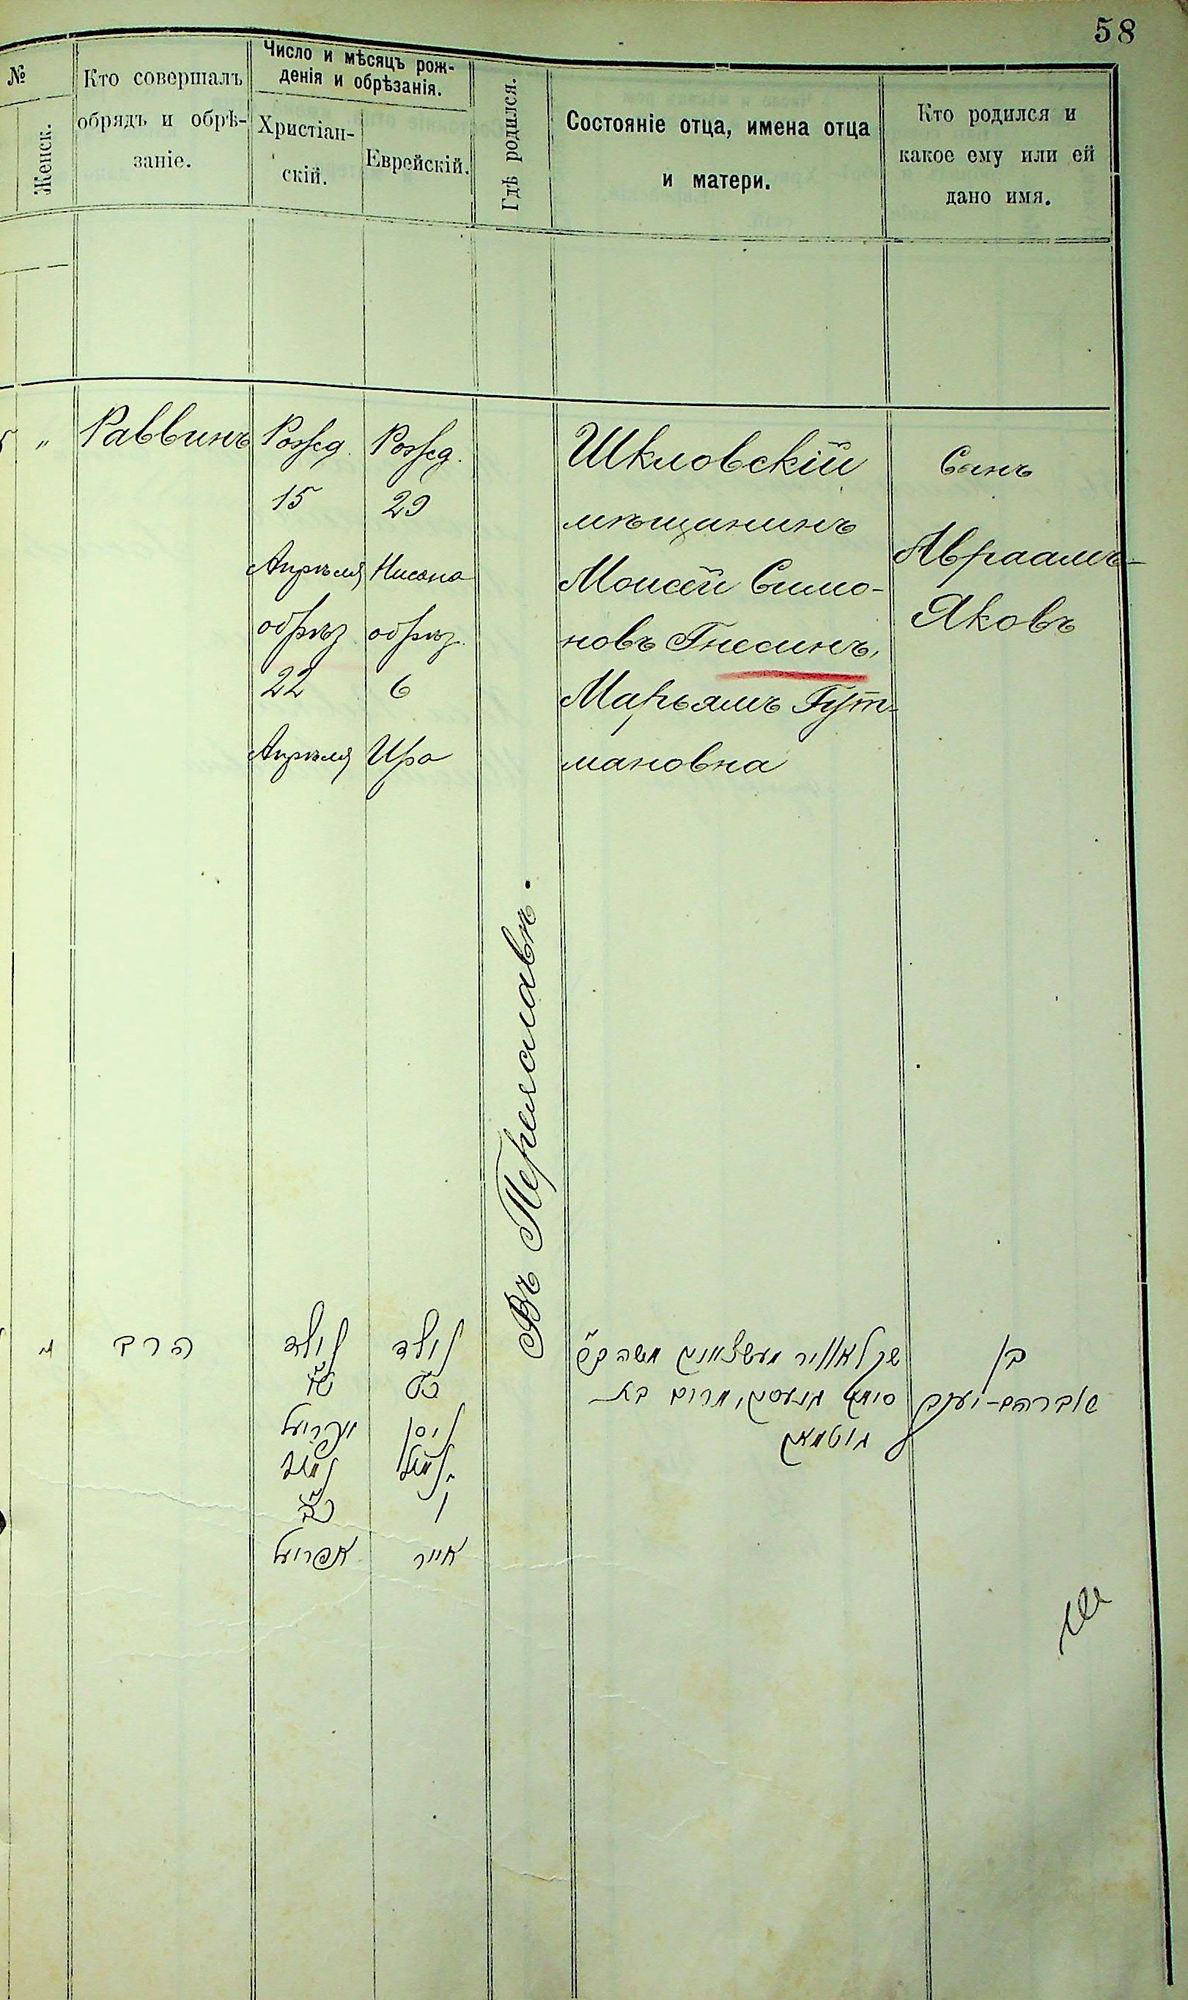 58
№
Женск.
Кто совершалъ
обрядъ и обрѣ-
заніе.
Число и мѣсяцъ рож-
денія и обрѣзанія.
Христіан-
скій.
Еврейскій.
Гдѣ родился.
Состояніе отца, имена отца
и матери.
Кто родился и
какое ему или ей
дано имя.
„
Раввинъ
Рожд.
15
Апрѣля
обрѣз.
22
Апрѣля
Рожд.
29
Нисана
обрѣз.
6
Ира
Въ Переяславѣ.
Шкловскій
мѣщанинъ
Моисей Симо-
новъ Гнесинъ,
Марьямъ Гут-
мановна
Сынъ
Авраамъ-
Яковъ
הרב
נולד
ט״ו
אפריעל
נמול
כ״ב
אפריעל
נולד
כ״ט
ניסן
נמול
ו
אייר
משה
גנעסין, מרים בת
גוטמאן
בן
אברהם-יעקב